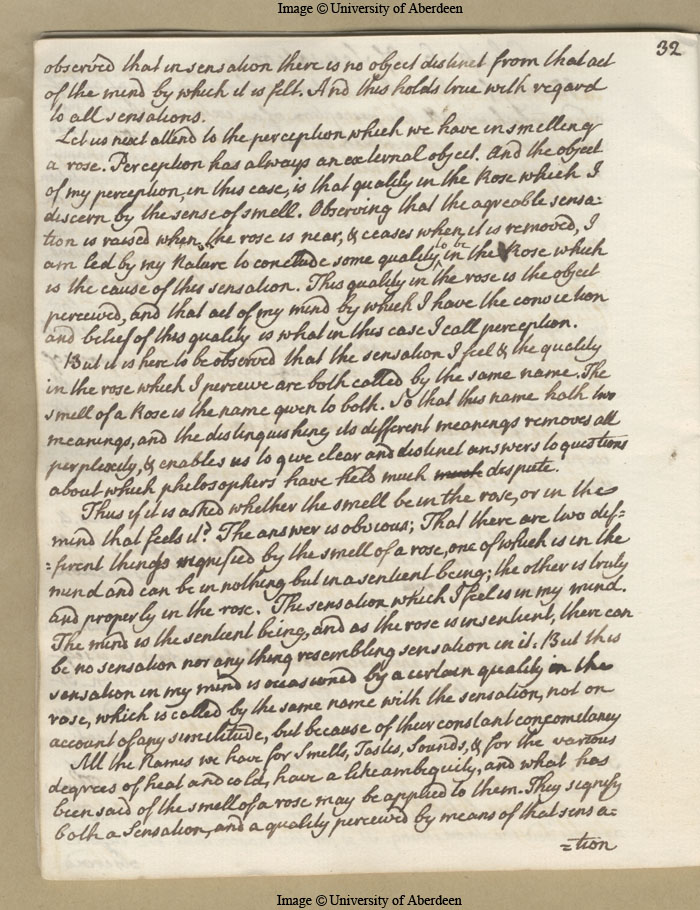 Image © University of Aberdeen
32
observed that in sensation there is no object distinct from that act
of the mind by which it is felt. And this holds true with regard
to all sensations.
Let us next attend to the perception which we have in smelling
a rose. Perception has always an external object. And the object
of my perception, in this case, is that quality in the Rose which I
discern by the sense of smell. Observing that the agreable sensa=
tion is raised when the rose is near, & ceases when it is removed, I
am led by my Nature to conclude some quality to be in the Rose which
is the cause of this sensation. This quality in the rose is the object
perceived, and that act of my mind by which I have the conviction
and belief of this quality is what in this case I call perception.
But it is here to be observed that the sensation I feel & the quality
in the rose which I perceive are both called by the same name. The
smell of a Rose is the name given to both. So that this name hath two
meanings, and the distinguishing its different meanings removes all
perplexity, & enables us to give clear and distinct answers to questions
about which philosophers have held much much dispute.
Thus if it is asked whether the smell be in the rose, or in the
mind that feels it? The answer is obvious; That there are two dif=
=ferent things signified by the smell of a rose, one of which is in the
mind and can be in nothing but in a sentient being; the other is truly
and properly in the rose. The sensation which I feel is in my mind.
The mind is the sentient being, and as the rose is insentient, there can
be no sensation nor any thing resembling sensation in it. But this
sensation in my mind is occasioned by a certain quality in the
rose, which is called by the same name with the sensation, not on
account of any similitude, but because of their constant concomitancy
All the Names we have for Smells, Tastes, Sounds, & for the various
degrees of heat and cold, have a like ambiguity, and what has
been said of the smell of a rose may be applied to them. They signify
both a Sensation, and a quality perceived by means of that sensa=
=tion
Image © University of Aberdeen